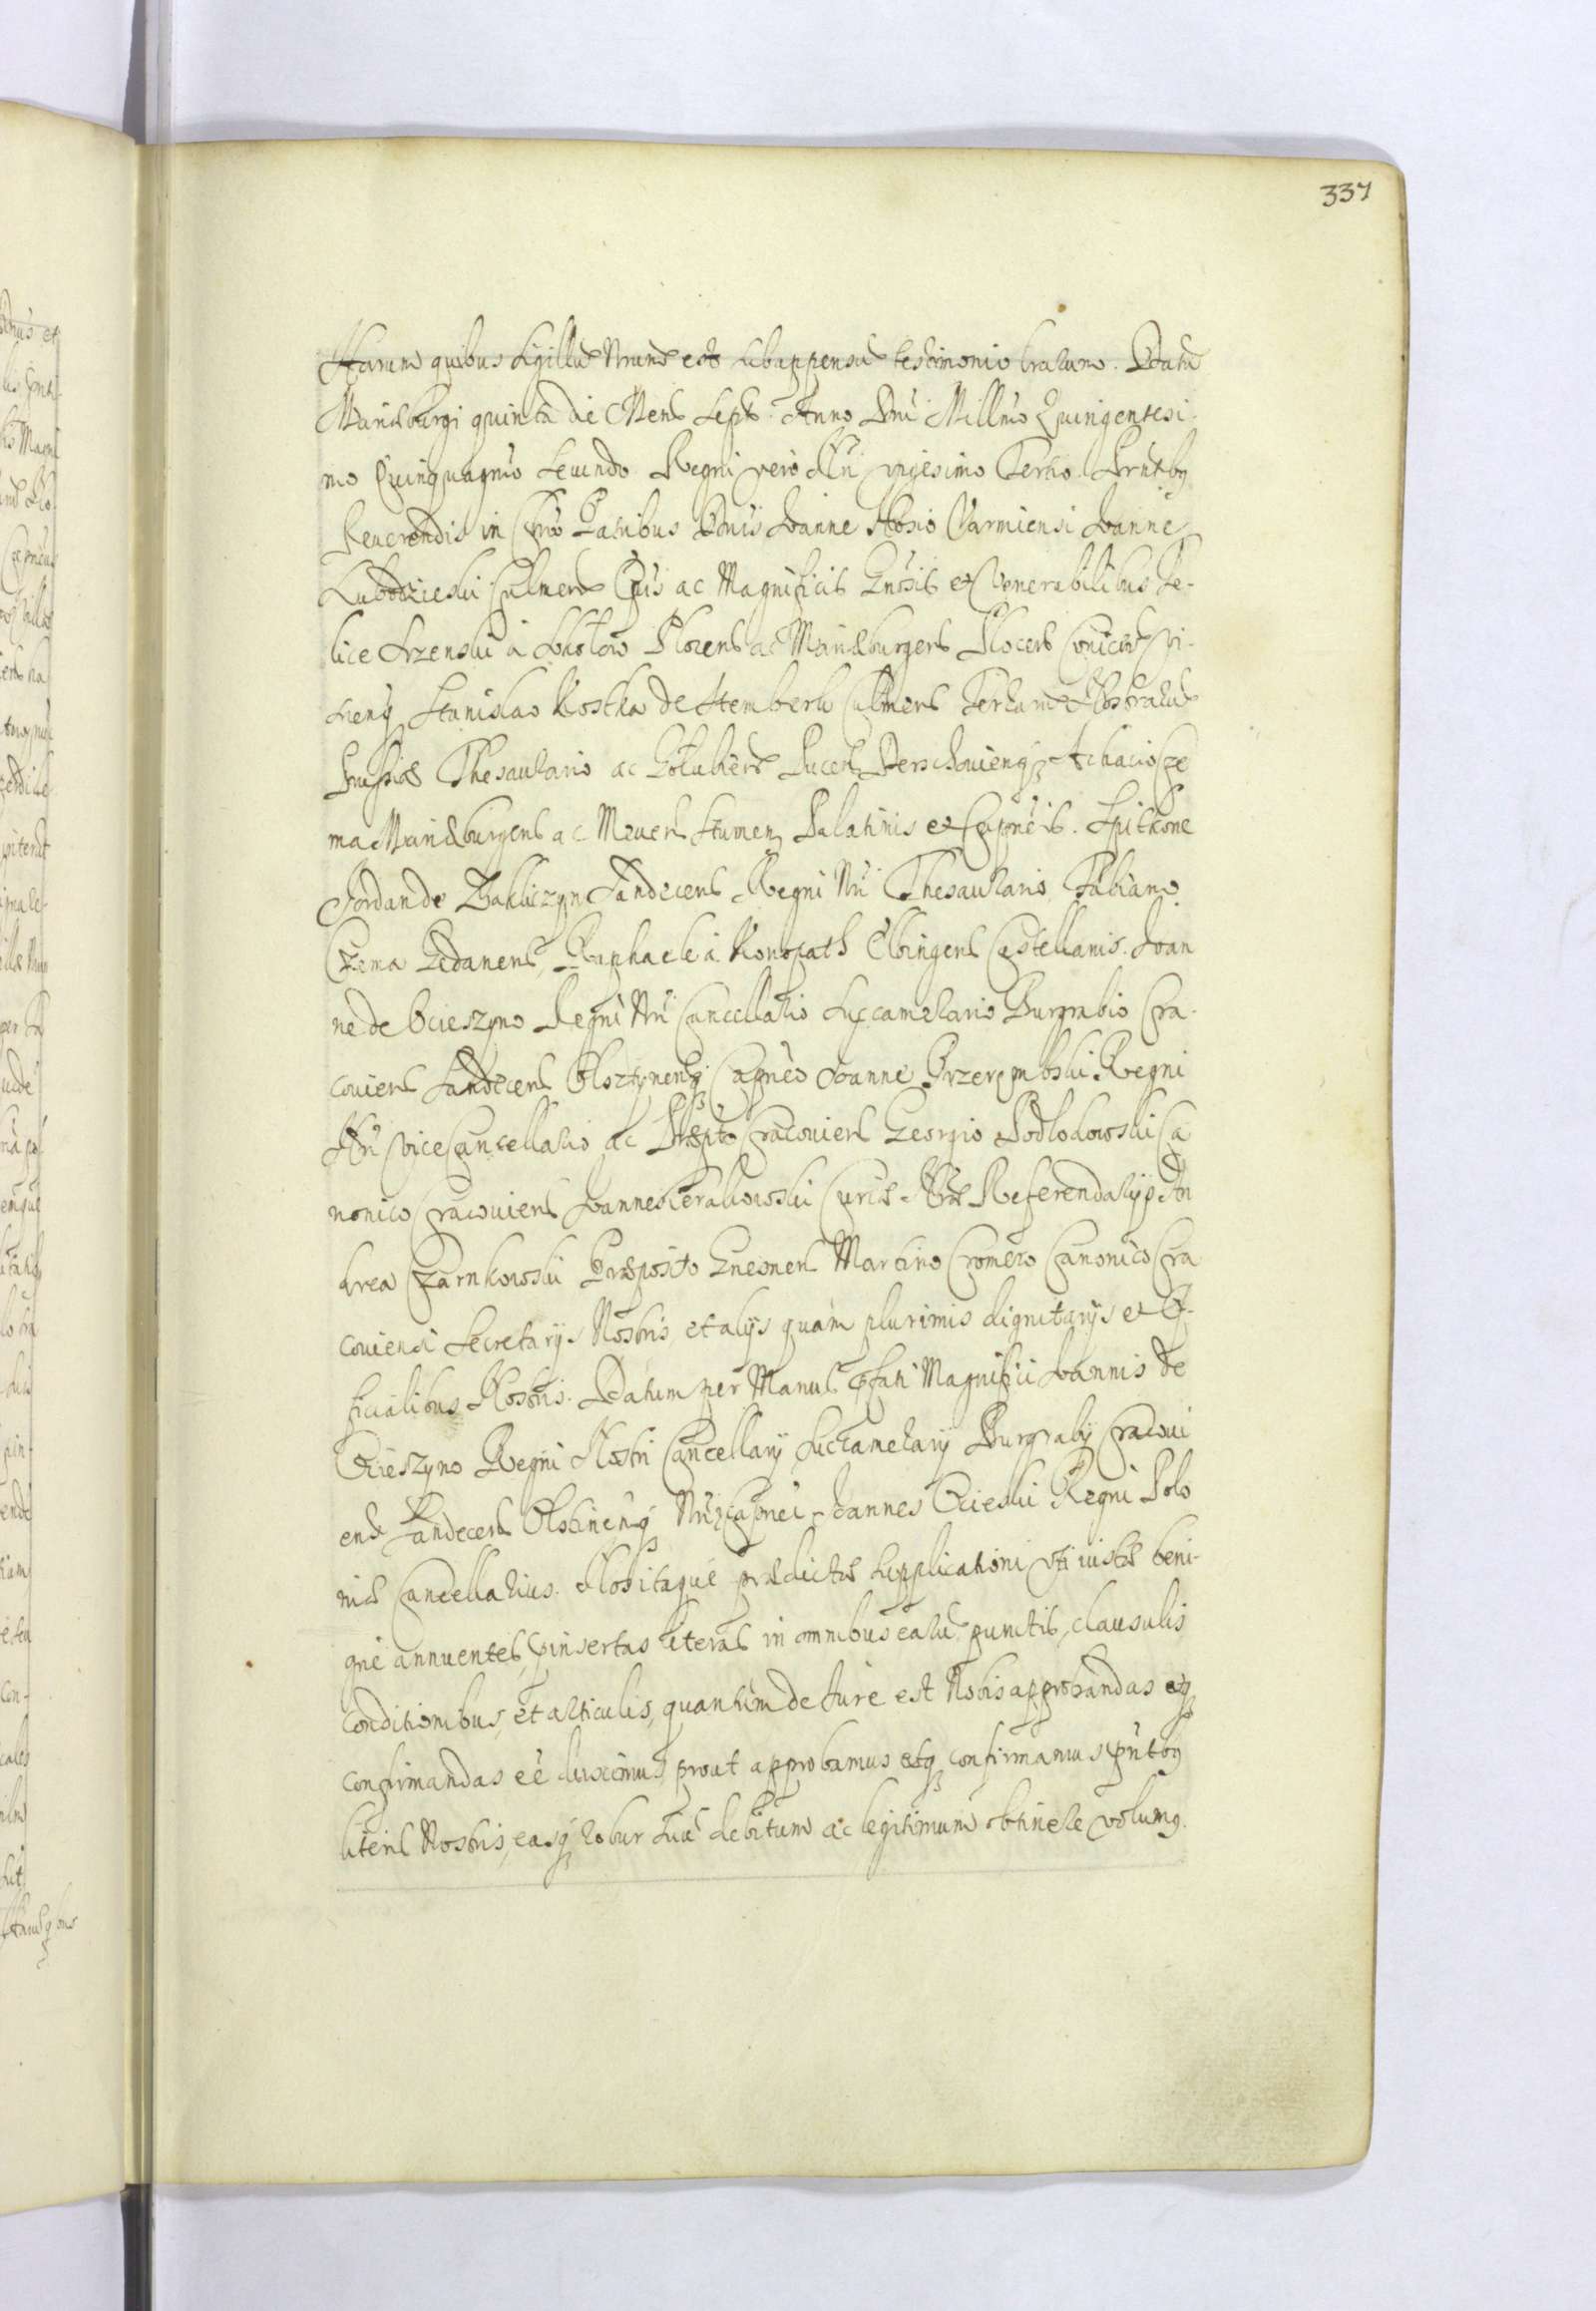 337
Harum quibus Sigillũ Nrum est subappensũ testimonio trarum. Datũ
Mariæburgi quinta die Mens Sept. Anno Dni Millmo Quingentesi-
mo Quinquagmo Secundo Regni vero Nri vigesimo Tertio. Prntbq
Reuerendis in Chro Patribus Dnis Ioanne Hosio Varmiensi Ioanne
Lubodzieski Culmens Epis ac Magnificis Gnosis et Venerabilibus Fe-
lice Srzenski à Plocens ac Mariæburgens Plocens
Stanislao Kostka de Stemberk Culmens Terrarum
Prussiæ Thesaurario ac Golubiens Achacio Cze
ma Mariæburgens ac Stumen Palatinis et Capneis. Spitkone
Jordan de Zakliczyn Sandecens Regni Nri Thesaurario Fabiano
Czema Gedanens, Raphaele à Konopath Elbingens Castellanis. Ioan
ne de Ocieszyno Regni Nri Cancellario Succamerario Burgrabio Cra-
couiens Sandecens Olsztynensq Capneo Ioanne Przerembski Regni
Nri ViceCancellario ac Præpto Cracouiens Georgio Podlodowski Ca
nonico Cracouiens Ioannes Curiæ Nræ Referendarijs An
drea Czarnkowski Præposito Gnesnens Martino Cromero Canonico Cra
couiensi Secretarijs Nostris, et alijs quam plurimis dignitarijs et Of-
ficialibus Nostris. Datum per Manus pfati Magnifici Ioannis de
Ocieszyno Regni Nostri Cancellarij Succamerarij Burgrabij Cracoui
ens Sandecens Olstinensq Capnei. Ioannes Ocieski Regni Polo
niæ Cancellarius. Nos itaque prædictæ supplicationi uti iustæ beni-
gne annuentes, pinsertas literas in omnibus earũ punctis, clausulis
conditionibus, et articulis, quantum de Iure est Nobis approbandas etq
confirmandas eẽ duximus, prout approbamus etq confirmamus pntbq
literis Nostris, easq robur suũ debitum ac legitimum obtinere volumq.